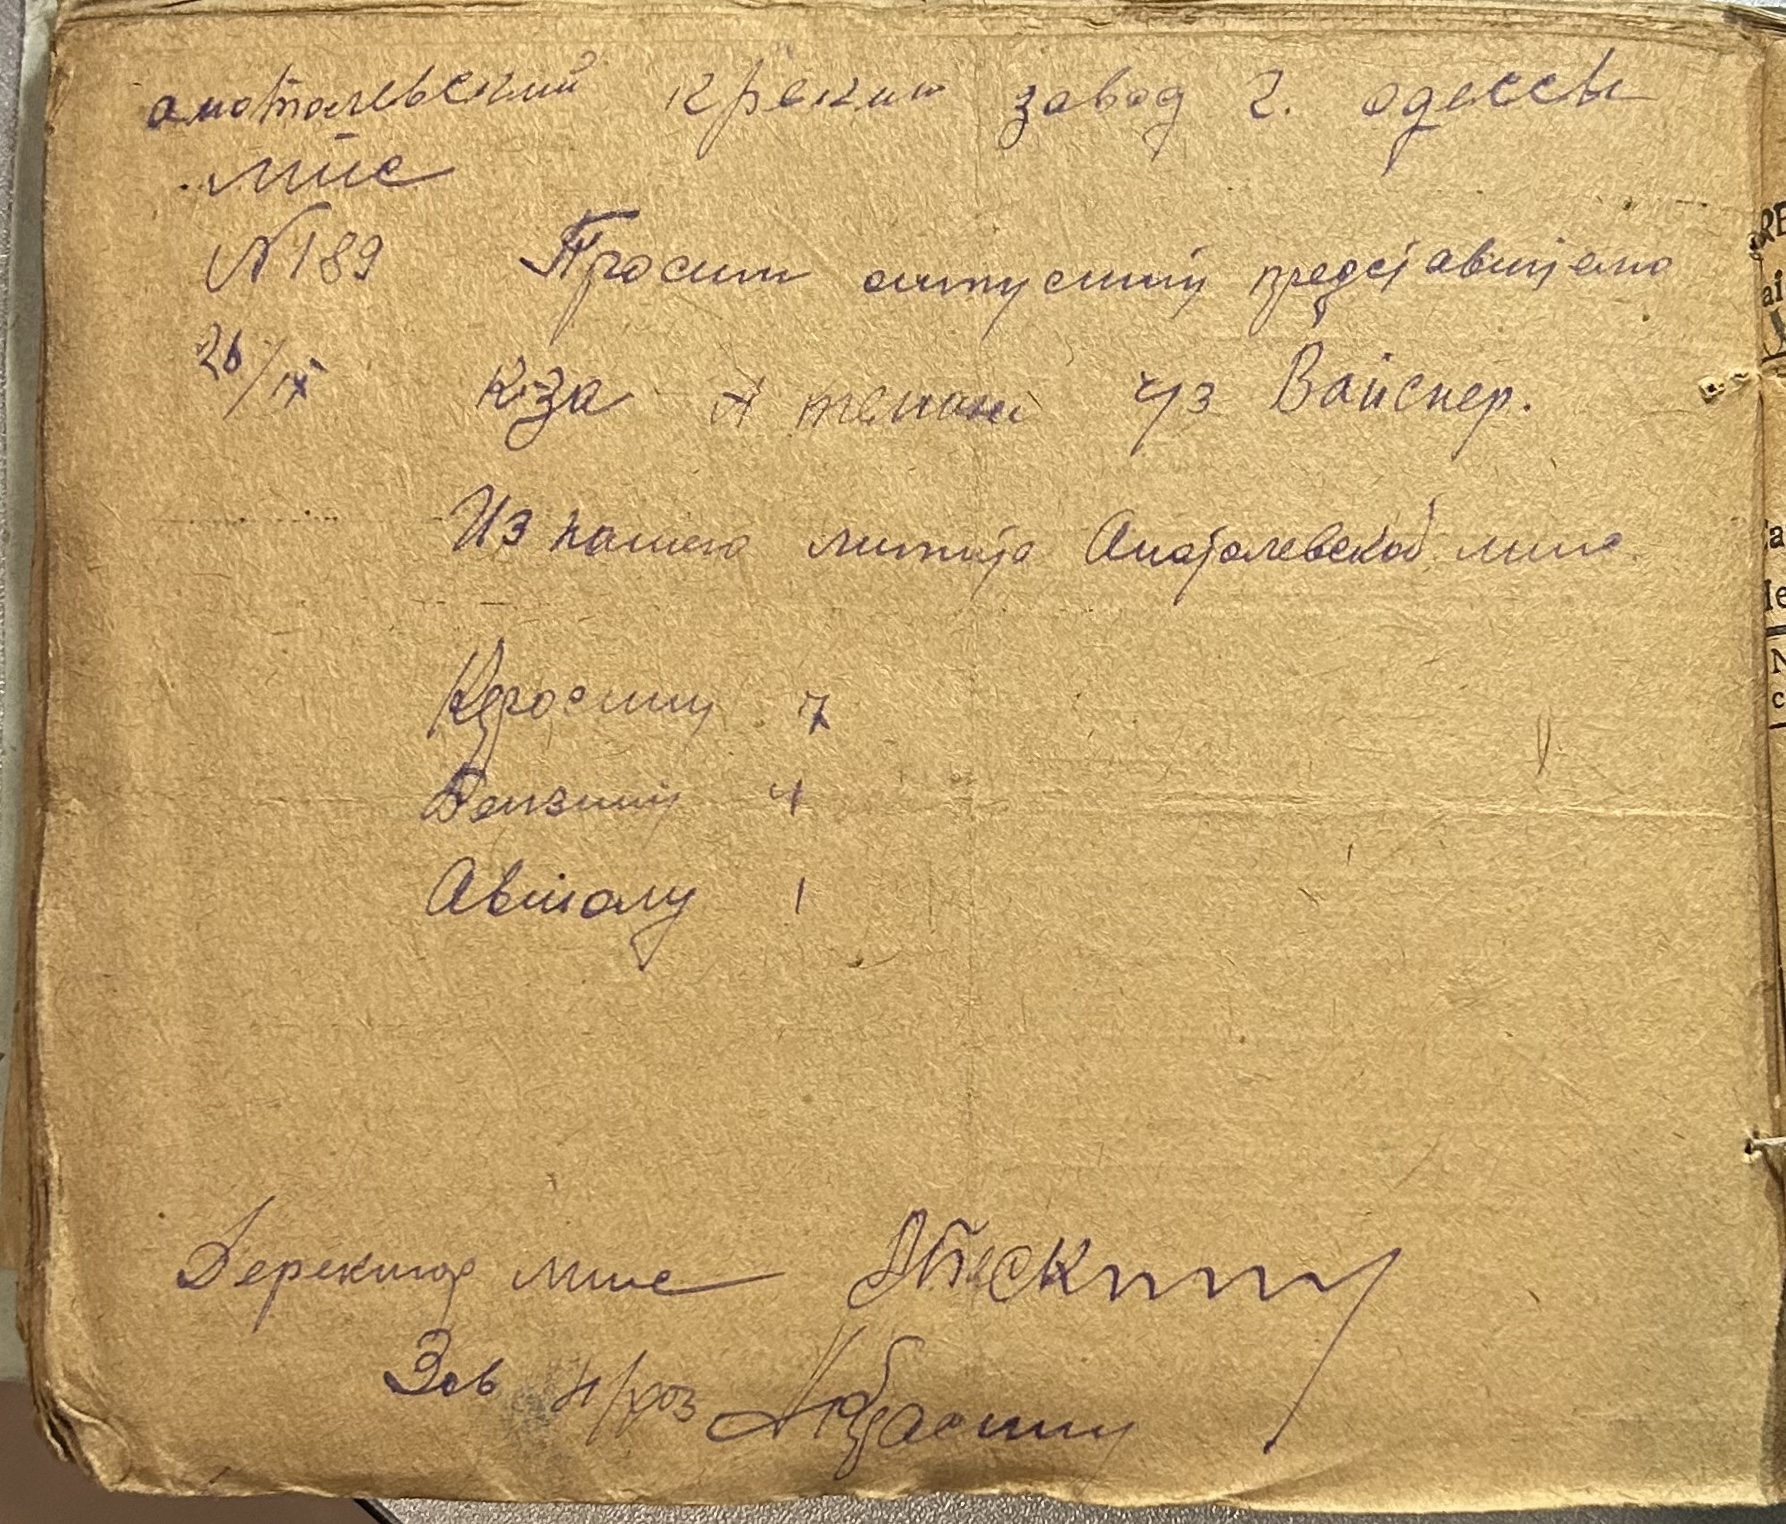 анатолевский крекин завод г. одессы
мтс
№ 189 Просим отпустить представителю
26/IX к-за Тельман ч/з Вайснер.
Из нашего лимита Анатолевской мтс.
Керосину 7
Бензину 4
Автолу 1
Деректор мтс
Зав н/хоз